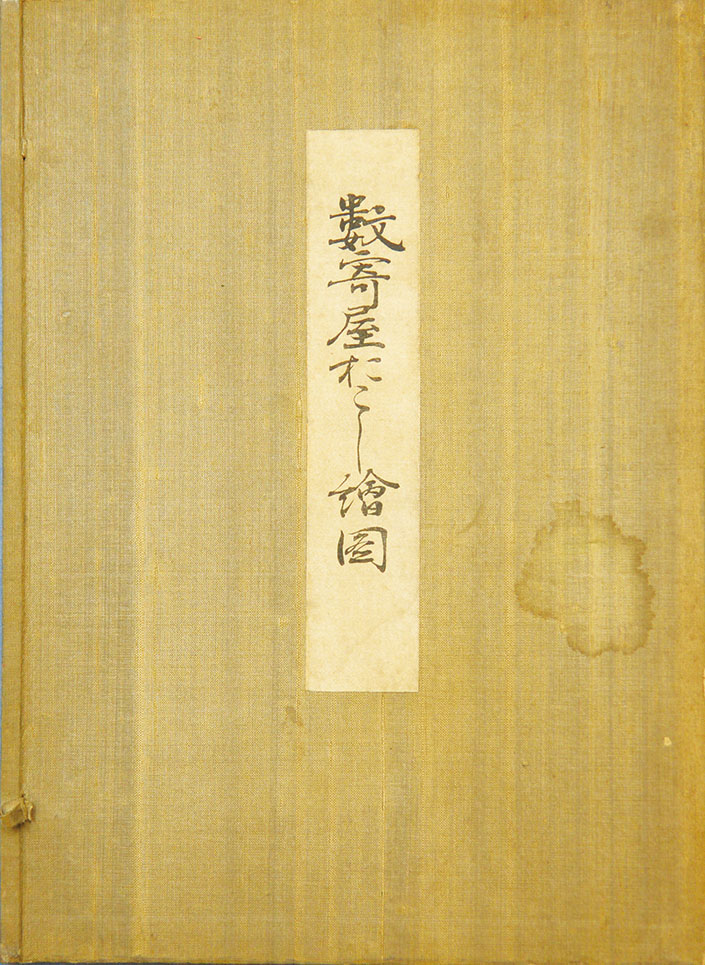 數寄屋おこし繪圖